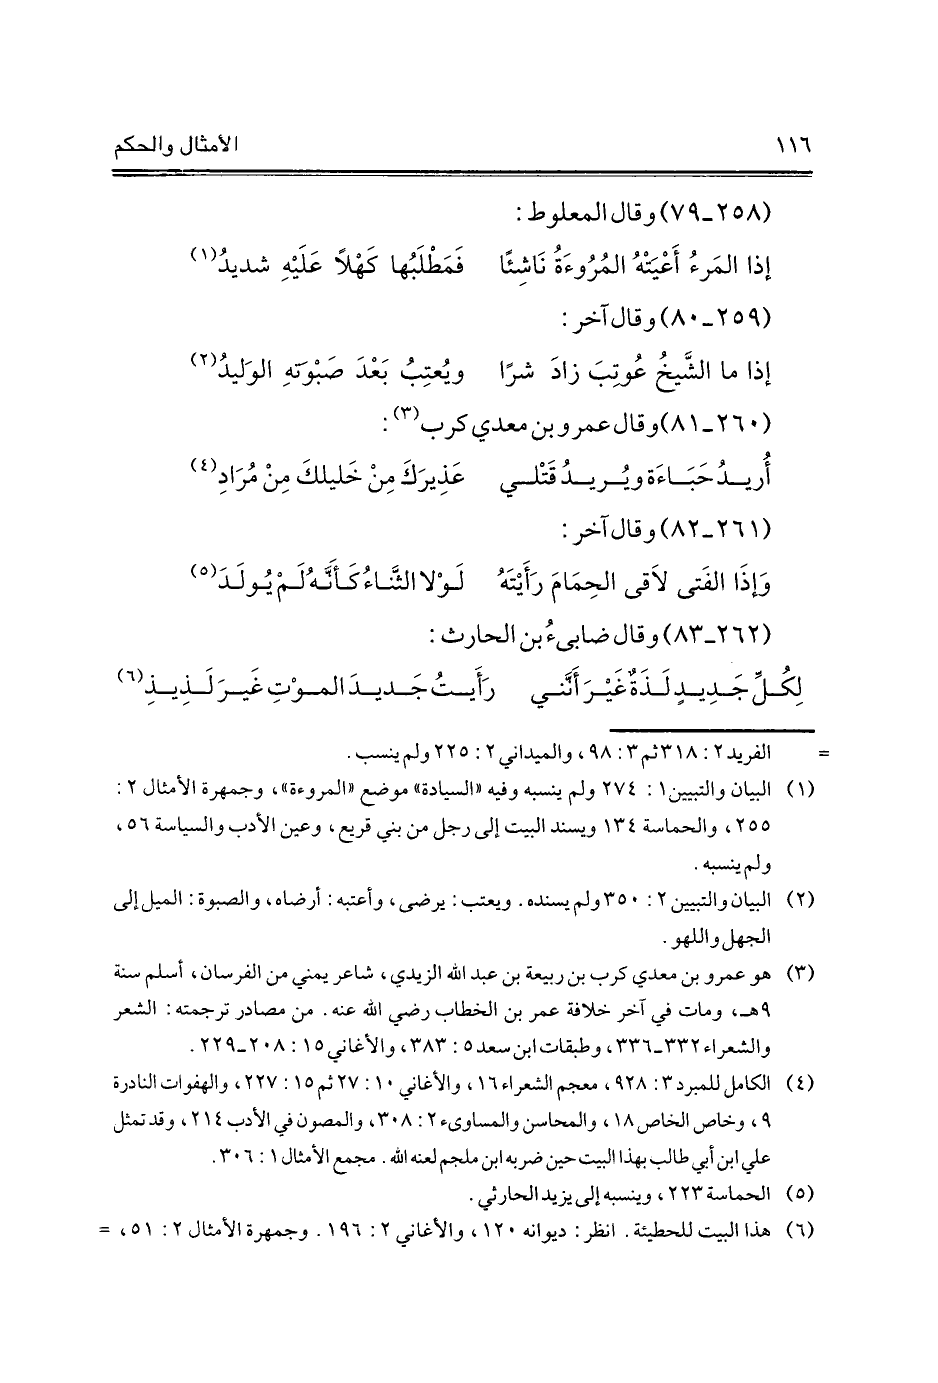 ١١٦ الأمثال والحكم
(٢٥٨ـ٧٩) وقال المعلوط :
إذا المَرءُ أَعْيَتْهُ المُرُوءَةُ نَاشِئًا فَمَطْلَبُها كَهْلاً عَلَيْهِ شديدُ(١)
(٢٥٩ـ٨٠) وقال آخر :
إذا ما الشَّيخُ عُوتِبَ زادَ شرًا ويُعتِبُ بَعْدَ صَبْوَتهِ الوَليدُ(٢)
(٢٦٠ـ٨١) وقال عمرو بن معدي كرب(٣) :
أُريــدُ حَبَــاءَة ويُــريــدُ قَتْلــي عَذِيرَكَ مِنْ خَليلكَ مِنْ مُرَادِ(٤)
(٢٦١ـ٨٢) وقال آخر :
وَإذَا الفَتى لاَقى الحِمَامَ رَأَيْتَهُ لَـوْلا الثَّنـاءُ كَـأَنَّـهُ لَـمْ يُـولَـدَ(٥)
(٢٦٢ـ٨٣) وقال ضابىءُ بن الحارث :
لِكُـلِّ جَـدِيـدٍ لَـذَةٌ غَيْـرَ أنَّنـي رَأَيـتُ جَـديـدَ المـوْتِ غَيـرَ لَـذِيـذِ(٦)
= الفريد ٢ : ٣١٨ ثم ٣ : ٩٨، والميداني ٢ : ٢٢٥ ولم ينسب .
(١) البيان والتبيين ١ : ٢٧٤ ولم ينسبه وفيه «السيادة» موضع «المروءة»، وجمهرة الأمثال ٢ :
٢٥٥ ، والحماسة ١٣٤ ويسند البيت إلى رجل من بني قريع ، وعين الأدب والسياسة ٥٦ ،
ولم ينسبه .
(٢) البيان والتبيين ٢ : ٣٥٠ ولم يسنده . ويعتب : يرضى ، وأعتبه : أرضاه، والصبوة : الميل إلى
الجهل واللهو .
(٣) هو عمرو بن معدي كرب بن ربيعة بن عبد الله الزيدي، شاعر يمني من الفرسان ، أسلم سنة
٩هـ، ومات في آخر خلافة عمر بن الخطاب رضي الله عنه . من مصادر ترجمته : الشعر
والشعراء ٣٣٢ـ٣٣٦، وطبقات ابن سعد ٥ : ٣٨٣، والأغاني ١٥ : ٢٠٨ـ٢٢٩ .
(٤) الكامل للمبرد ٣ : ٩٢٨ ، معجم الشعراء ١٦ ، والأغاني ١٠ : ٢٧ ثم ١٥ : ٢٢٧ ، والهفوات النادرة
٩ ، وخاص الخاص ١٨ ، والمحاسن والمساوىء ٢ : ٣٠٨، والمصون في الأدب ٢١٤ ، وقد تمثل
علي ابن أبي طالب بهذا البيت حين ضربه ابن ملجم لعنه الله . مجمع الأمثال ١ : ٣٠٦.
(٥) الحماسة ٢٢٣ ، وينسبه إلى يزيد الحارثي .
(٦) هذا البيت للحطيئة . انظر : ديوانه ١٢٠ ، والأغاني ٢ : ١٩٦ . وجمهرة الأمثال ٢ : ٥١ ، =